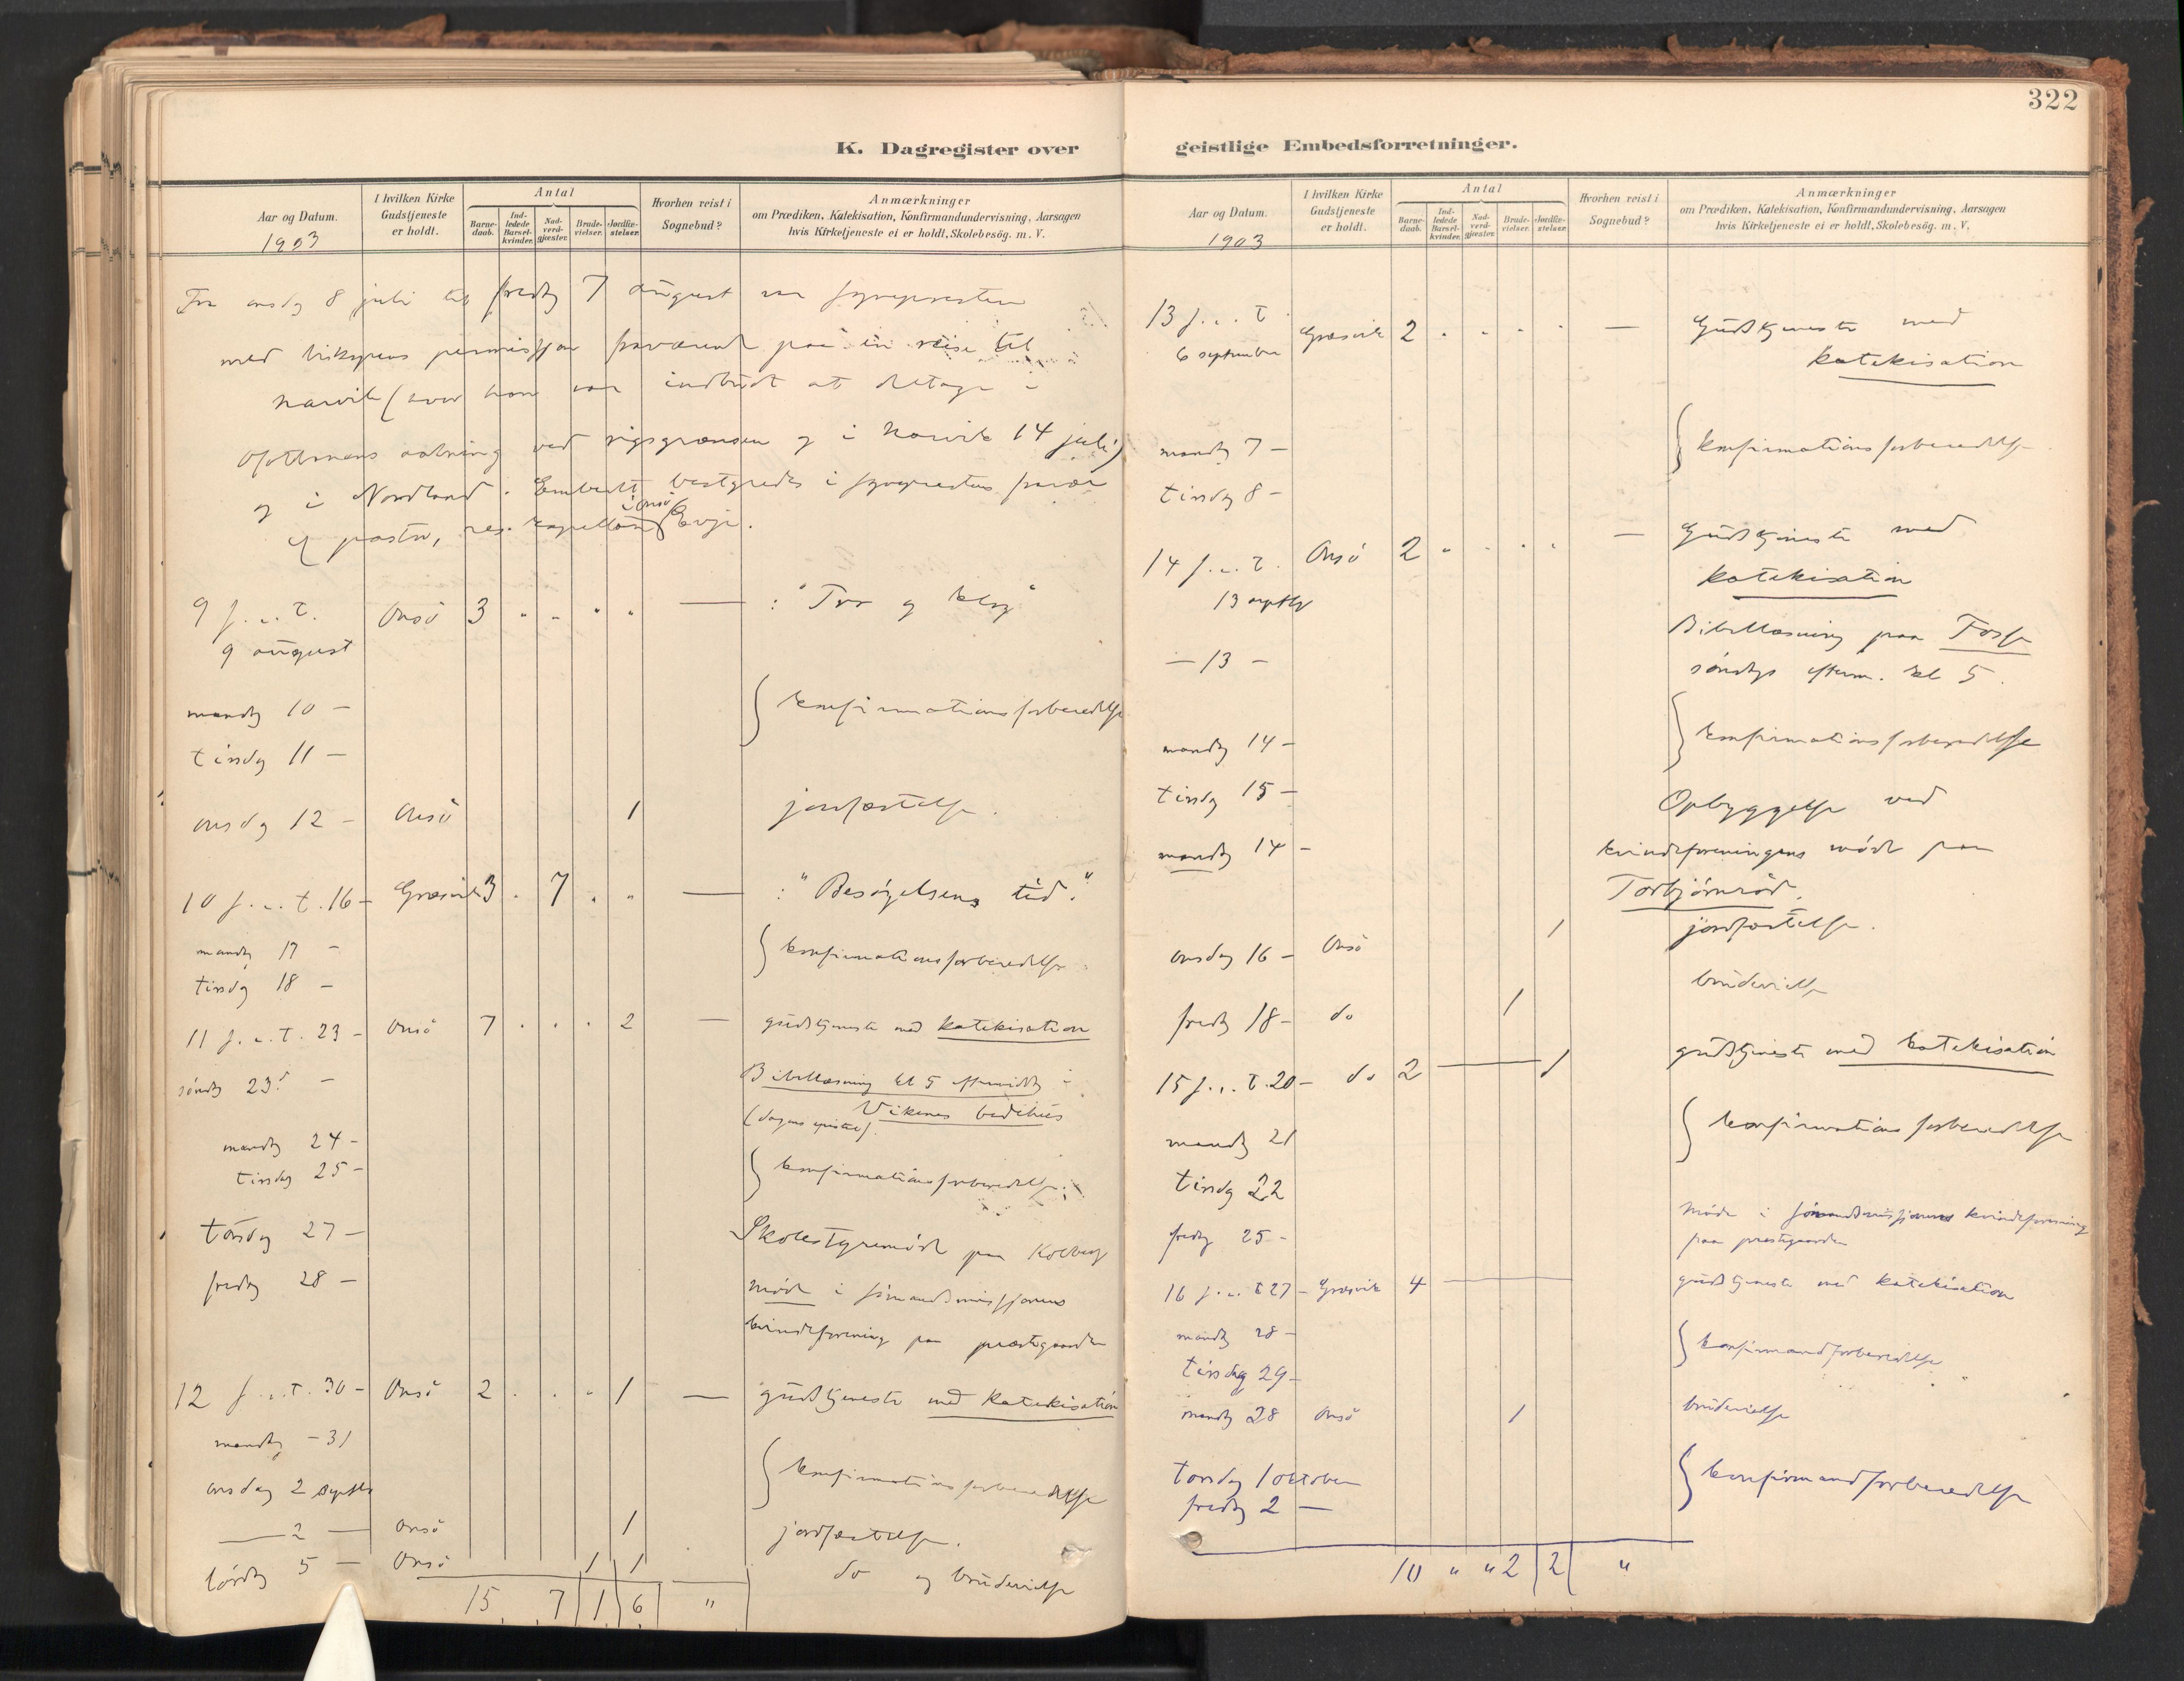 322
K. Dagregister over geistlige Embedsforretninger.
Aar og Datum.
1903
I hvilken Kirke Gudstjeneste er holdt.
Antal
Barnedaab.
Indledede Barselkvinder.
Nadverdgjæster.
Brudevielser.
Jordfæstelser.
Hvorhen reist i Sognebud?
Anmærkninger
om Prædiken, Katekisation, Konfirmandundervisning, Aarsagen
hvis Kirketjeneste ei er holdt, Skolebesøg. m. V.
Fra onsdg 8 juli til fredg 7 august var sognepresten
med biskopens permissjon fraværende paa en reise til
Narvik (hvor han var indbudt at deltage i
Ofotbanens aabning ved rigsgrænsen og i Narvik 14 juli)
og i Nordland. Embedet bestyredes i sogneprestens fravær
af pastor, res. kapellan i Onsö Evje.
9 s. e. t. Onsö 3 " " " " — : "Tro og
9 august
mandg 10 — } konfirmationsforberedelse
tirsdg 11 —
onsdg 12 — Onsö 1 jordfæstelse.
10 s. e. t. 16 — Græsvik 3 . 7 . " — : "Besøgelsens tid."
mandg 17 — } konfirmationsforberedelse
tirsdg 18 —
11 s. e. t. 23 — Onsö 7 . . . 2 — gudstjeneste med katekisation
söndg 23 — Bibellæsning kl 5 eftermiddg i
Vikenes bedehus
(dagens epistel).
mandg 24 —
tirsdag 25 — } konfirmationsforberedelse.
torsdg 27 — Skolestyremöde paa Kolberg
fredg 28 — Möde i sömandsmissjonens
kvindeforening paa præstegaarden
12 s. e. t. 30 — Onsö 2 . . " 1 — gudstjeneste med katekisation
mandg — 31
onsdag 2 septbr } konfirmationsforberedelse
— 2 — Onsö 1 jordfæstelse.
lördg 5 — Onsö 1 1 do og brudevielse
15 7 1 6 "
Aar og Datum.
1903
I hvilken Kirke Gudstjeneste er holdt.
Antal
Barnedaab.
Indledede Barselkvinder.
Nadverdgjæster.
Brudevielser.
Jordfæstelser.
Hvorhen reist i Sognebud?
Anmærkninger
om Prædiken, Katekisation, Konfirmandundervisning, Aarsagen
hvis Kirketjeneste ei er holdt, Skolebesøg. m. V.
13 s. e. t.
6 september Græsvik 2 . . . . — Gudstjeneste med
katekisation
mandg 7 — } konfirmationsforberedelse
tirsdg 8 —
14 s. e. t. Onsö 2 " . . . — Gudstjeneste med
13 septbr katekisation
— 13 — Bibellæsning paa Fosse
söndags efterm. kl 5.
mandg 14 — } konfirmationsforberedelse
tirsdg 15 —
mandg 14 — Opbyggelse ved
kvindeforeningens möde paa
Torbjörnröd.
onsdag 16 — Onsö 1 jordfæstelse.
fredg 18 — do 1 brudevielse
15 s. e. t. 20 — do 2 — 1 gudstjeneste med katekisation
mandg 21 } konfirmationsforberedelse
tirsdg 22
fredg 25 — Möde i sömandsmissjonens kvindeforening
paa præstegaarden
16 s. e. t 27 — Græsvik 4 — gudstjeneste med katekisation
mandg 28 — } konfirmandforberedelse
tirsdag 29 —
mandg 28 Onsö 1 brudevielse
torsdag 1 oktober } konfirmandforberedelse
fredg 2 —
10 " " 2 2 "